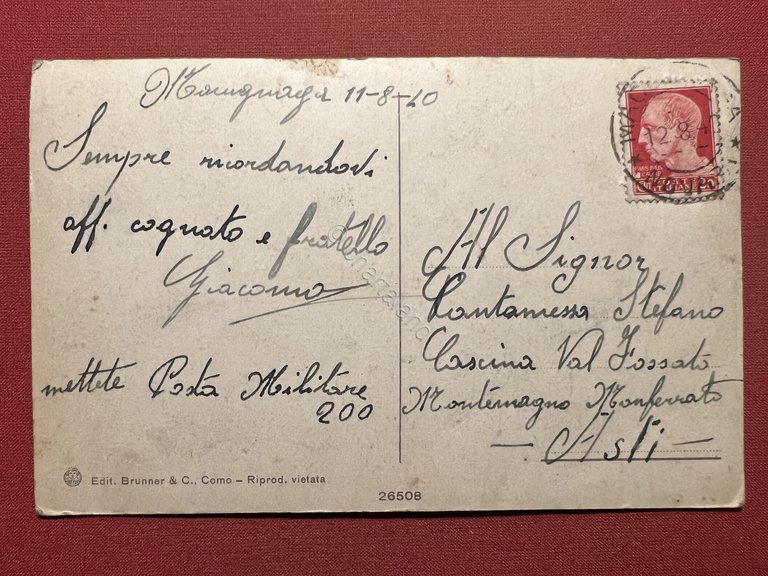 Macugnaga 11-8-40
Sempre ricordandovi
aff. cognato e fratello
Giacomo
mettete Posta Militare
200
Edit. Brunner & C., Como – Riprod. vietata
26508
Al Signor
Cantamessa Stefano
Cascina Val Fossato
Montemagno Monferrato
— Asti —